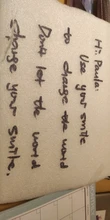 Hi Paula:
Use your smile
to change the world
Dont let the world
change your smile.